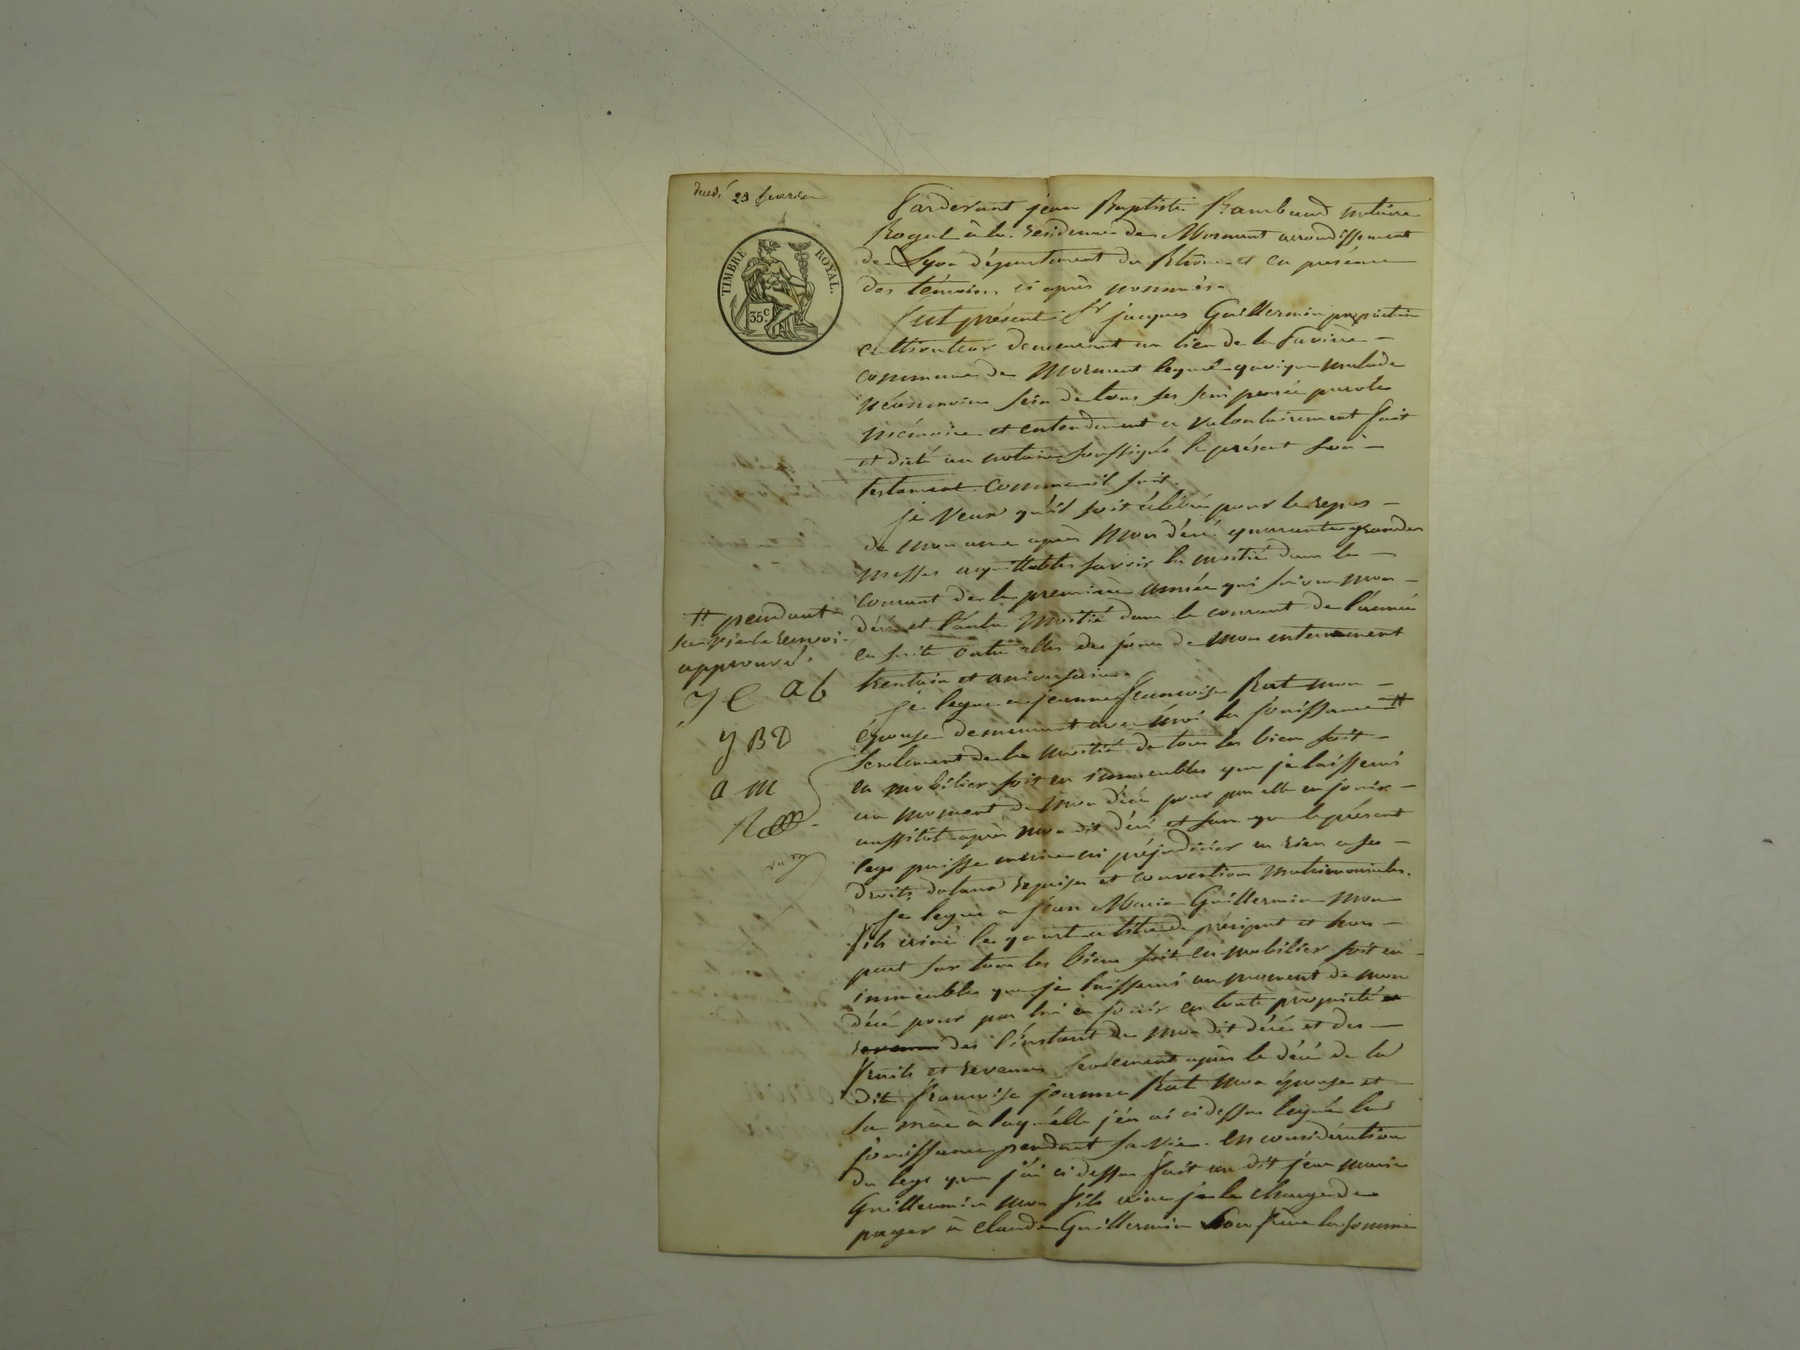 23
TIMBRE ROYAL.
35 c.
Pardevant jean Baptiste Rambaud notaire
Royal à la résidence de Mornant arrondissement
de Lyon département du Rhône et en présence
des témoins ci après nommés.
fut présent Sr jacques Guillermin propriétaire
cultivateur demeurant au lieu de la
commune de Mornant lequel quoique malade
néanmoins sein de tous ses sens pensée parole
mémoire et entendement a volontairement fait
et dicté au notaire soussigné le présent son
testament comme il suit.
je veux qu'il soit célébré pour le repos
de mon ame après mon décé quarante grandes
messes acquittables savoir la moitié dans le
courant de la premiere année qui suivra mon
décé et l'autre moitié dans le courant de l'année
en suite outre celles des jours de mon enterrement
trentain et aniversaire.
je legue a jeanne francoise Rat mon
épouse demeurant avec moi la jouissance #
seulement de la moitié de tous les bien soit
en mobilier soit en immeubles que je laisserai
au moment de mon décé pour par elle en jouir
aussitot après mon dit décé et sans que le présent
legs puisse nuire ni préjudicier en rien a ses
droits dotaux reprises et conventions matrimoniales.
je legue a jean Marie Guillermin mon
fils ainé le quart a titre de préciput et hors
part sur tous les biens soit en mobilier soit en
immeubles que je laisserai au moment de mon
décé pour par lui en jouir en toute propriété
des l'instant de mon dit décé et des
fruits et revenus seulement après le décé de la
dit francoise jeanne Rat mon épouse et
sa mère a laquelle j'en ai ci dessus legué la
jouissance pendant sa vie. en considération
du legs que j'ai ci dessus fait au dit jean marie
Guillermin mon fils ainé je le charge de
payer à Claude Guillermin son frère la somme
# pendant
sa vie le renvoi
approuvé.
a b
j B D
a m